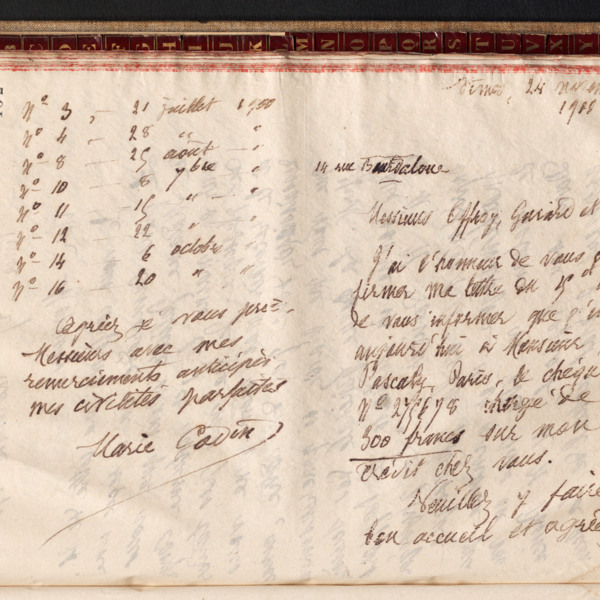 B C D E F G H I J K L M N O P Q R S T U V X Y
Nº 3 „ — 21 juillet 1900
Nº 4 „ — 28 „ „
Nº 8 — 25 août „
Nº 10 — 8 7bre „
Nº 11 — 15 „ „
Nº 12 — 22 „ „
Nº 14 — 6 octobre „
Nº 16 — 20 „ „
Agréez je vous prie,
Messieurs avec mes
remerciements anticipés
mes civilités parfaites
Marie Godin
Nîmes, 24
1908
14 rue Bourdaloue
Messieurs Offroy, Guiard et
J'ai l'honneur de vous
firmer ma lettre du 15
de vous informer que j'
aujourd'hui à Monsieur
Pascaly, Paris, le chèque
Nº 275678 chargé de
300 francs sur mon
crédit chez vous.
Veuillez y faire
bon accueil et agrée